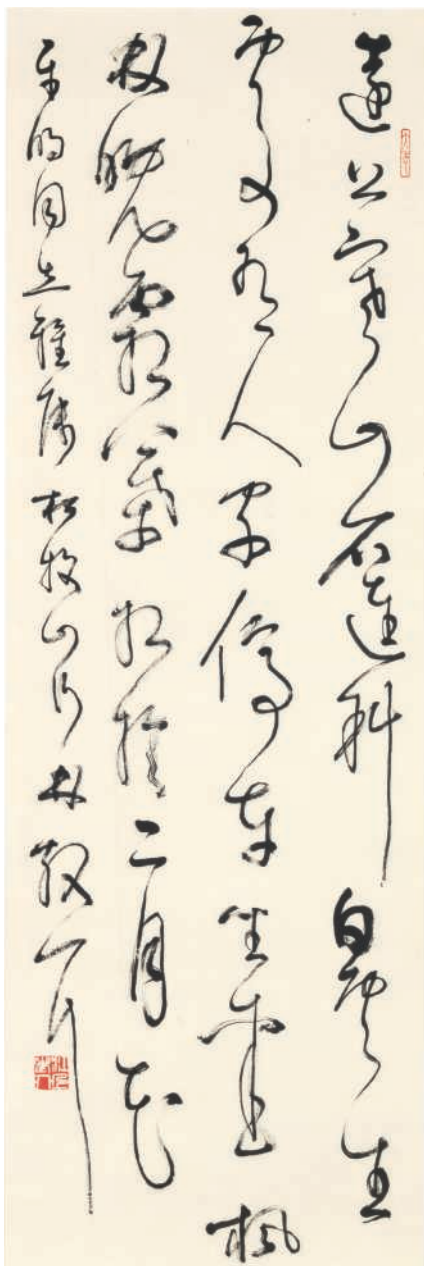 遠上寒山石逕斜白雲生
處有人家停車坐愛楓
林晚霜葉紅於二月花
同志雅屬 杜牧山行 林散耳